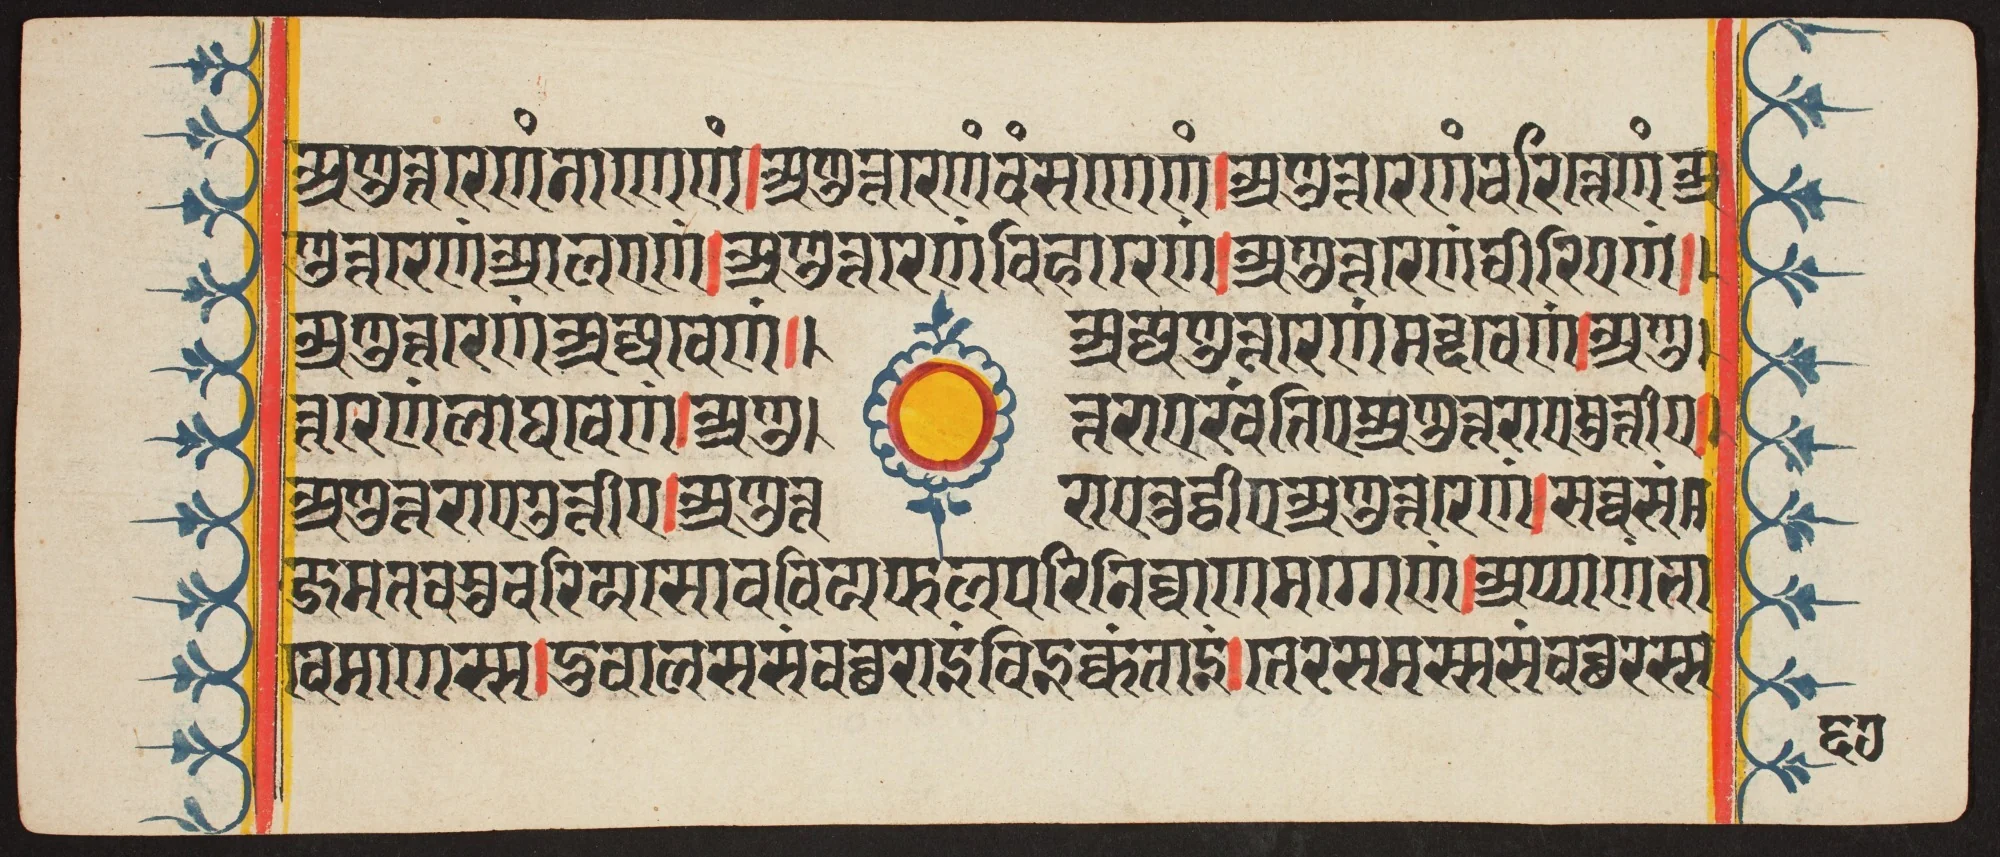 अणुत्तरेणं नाणेणं । अणुत्तरेणं दंसणेणं । अणुत्तरेणं चरित्तेणं अ
णुत्तरेणं आलएणं । अणुत्तरेणं विहारेणं । अणुत्तरेणं वीरिएणं ।
अणुत्तरेणं अज्जवेणं । अणुत्तरेणं मद्दवेणं । अणु
त्तरेणं लाघवेणं । अणुत्तराए खंतिए अणुत्तराए मुत्तीए ।
अणुत्तराए गुत्तीए । अणुत्तराए तुट्ठीए अणुत्तरेणं । सच्चसं
जमतवसुचरियसोवचियफलपरिनिव्वाणमग्गेणं । अप्पाणं भा
वेमाणस्स । दुवालससंवच्छराइं विइक्कंताइं । तेरसमस्स संवच्छरस्स
६७